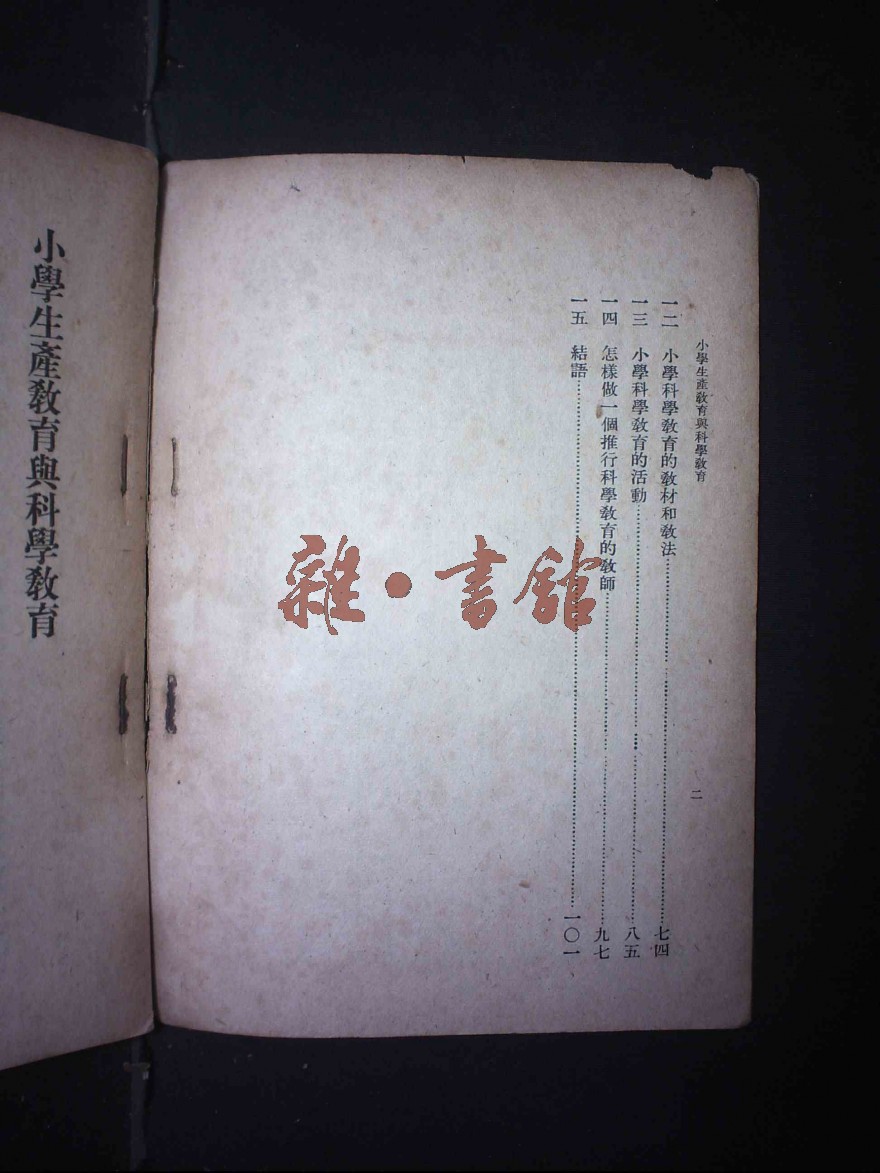 小學生產教育與科學教育
二
一二 小學科學教育的教材和教法……七四
一三 小學科學教育的活動……八五
一四 怎樣做一個推行科學教育的教師……九七
一五 結語……一〇一
雜·書館
小學生產教育與科學教育